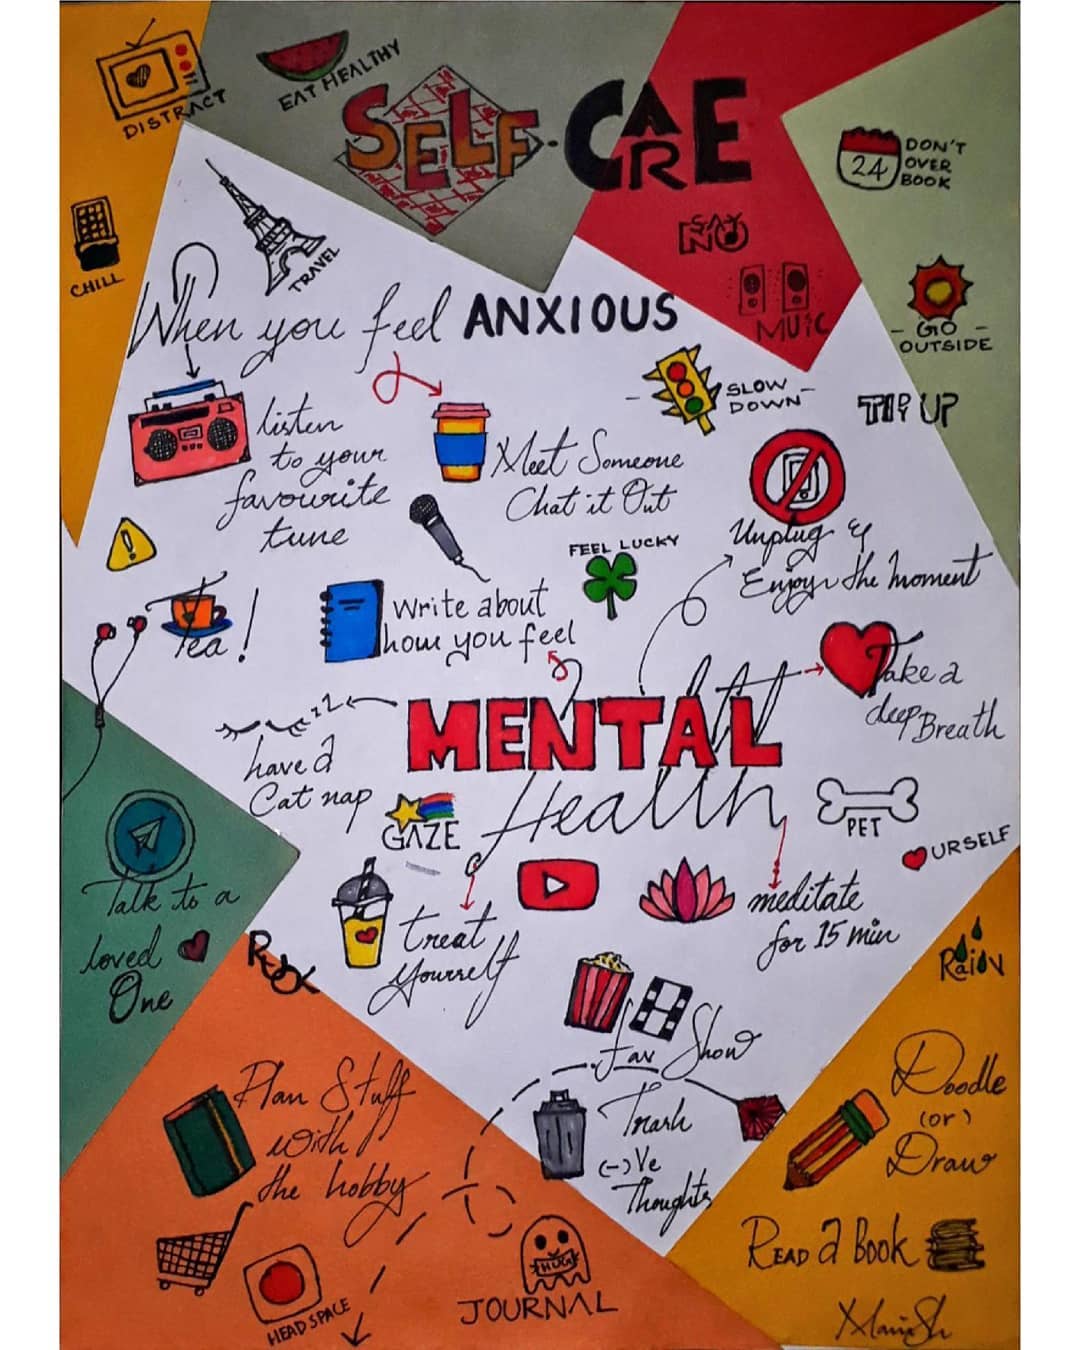 DISTRACT
EAT HEALTHY
SELF-CARE
24
DON'T
OVER
BOOK
CHILL
TRAVEL
SAY
NO
MUSIC
- GO -
OUTSIDE
When you feel ANXIOUS
- SLOW -
DOWN
UP
listen
to your
favourite
tune
Meet Someone
Chat it Out
!
FEEL LUCKY
Unplug &
Enjoy the moment
Tea!
Write about
how you feel
Take a
deep Breath
zzz
MENTAL
Health
have a
Cat nap
GAZE
PET
URSELF
Talk to a
loved
One
treat
yourself
meditate
for 15 min
RaiN
Fav Show
Plan Stuff
with
the hobby
Trash
(-)Ve
Thoughts
Doodle
(or)
Draw
READ a Book
HUG
JOURNAL
HEADSPACE